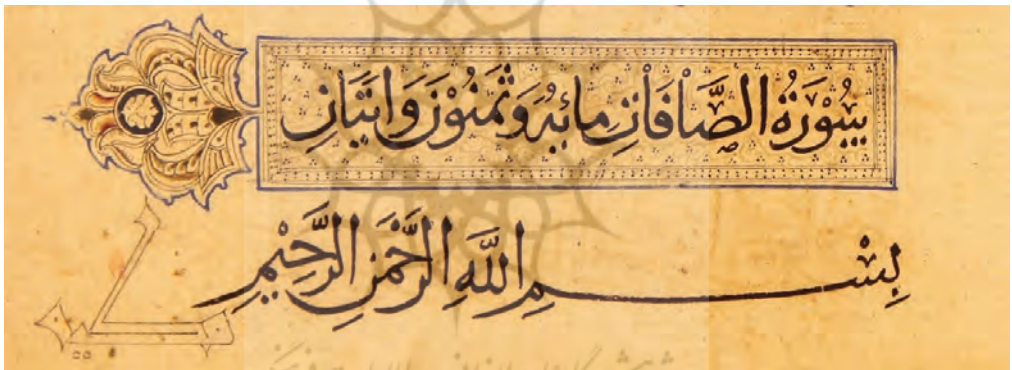 سُوْرَةُ الصَّافَاتِ مِائَةٌ وَثَمَنُوْنَ وَاثْنَتَانِ
بِسْمِ اللَّهِ الرَّحْمَنِ الرَّحِيْمِ